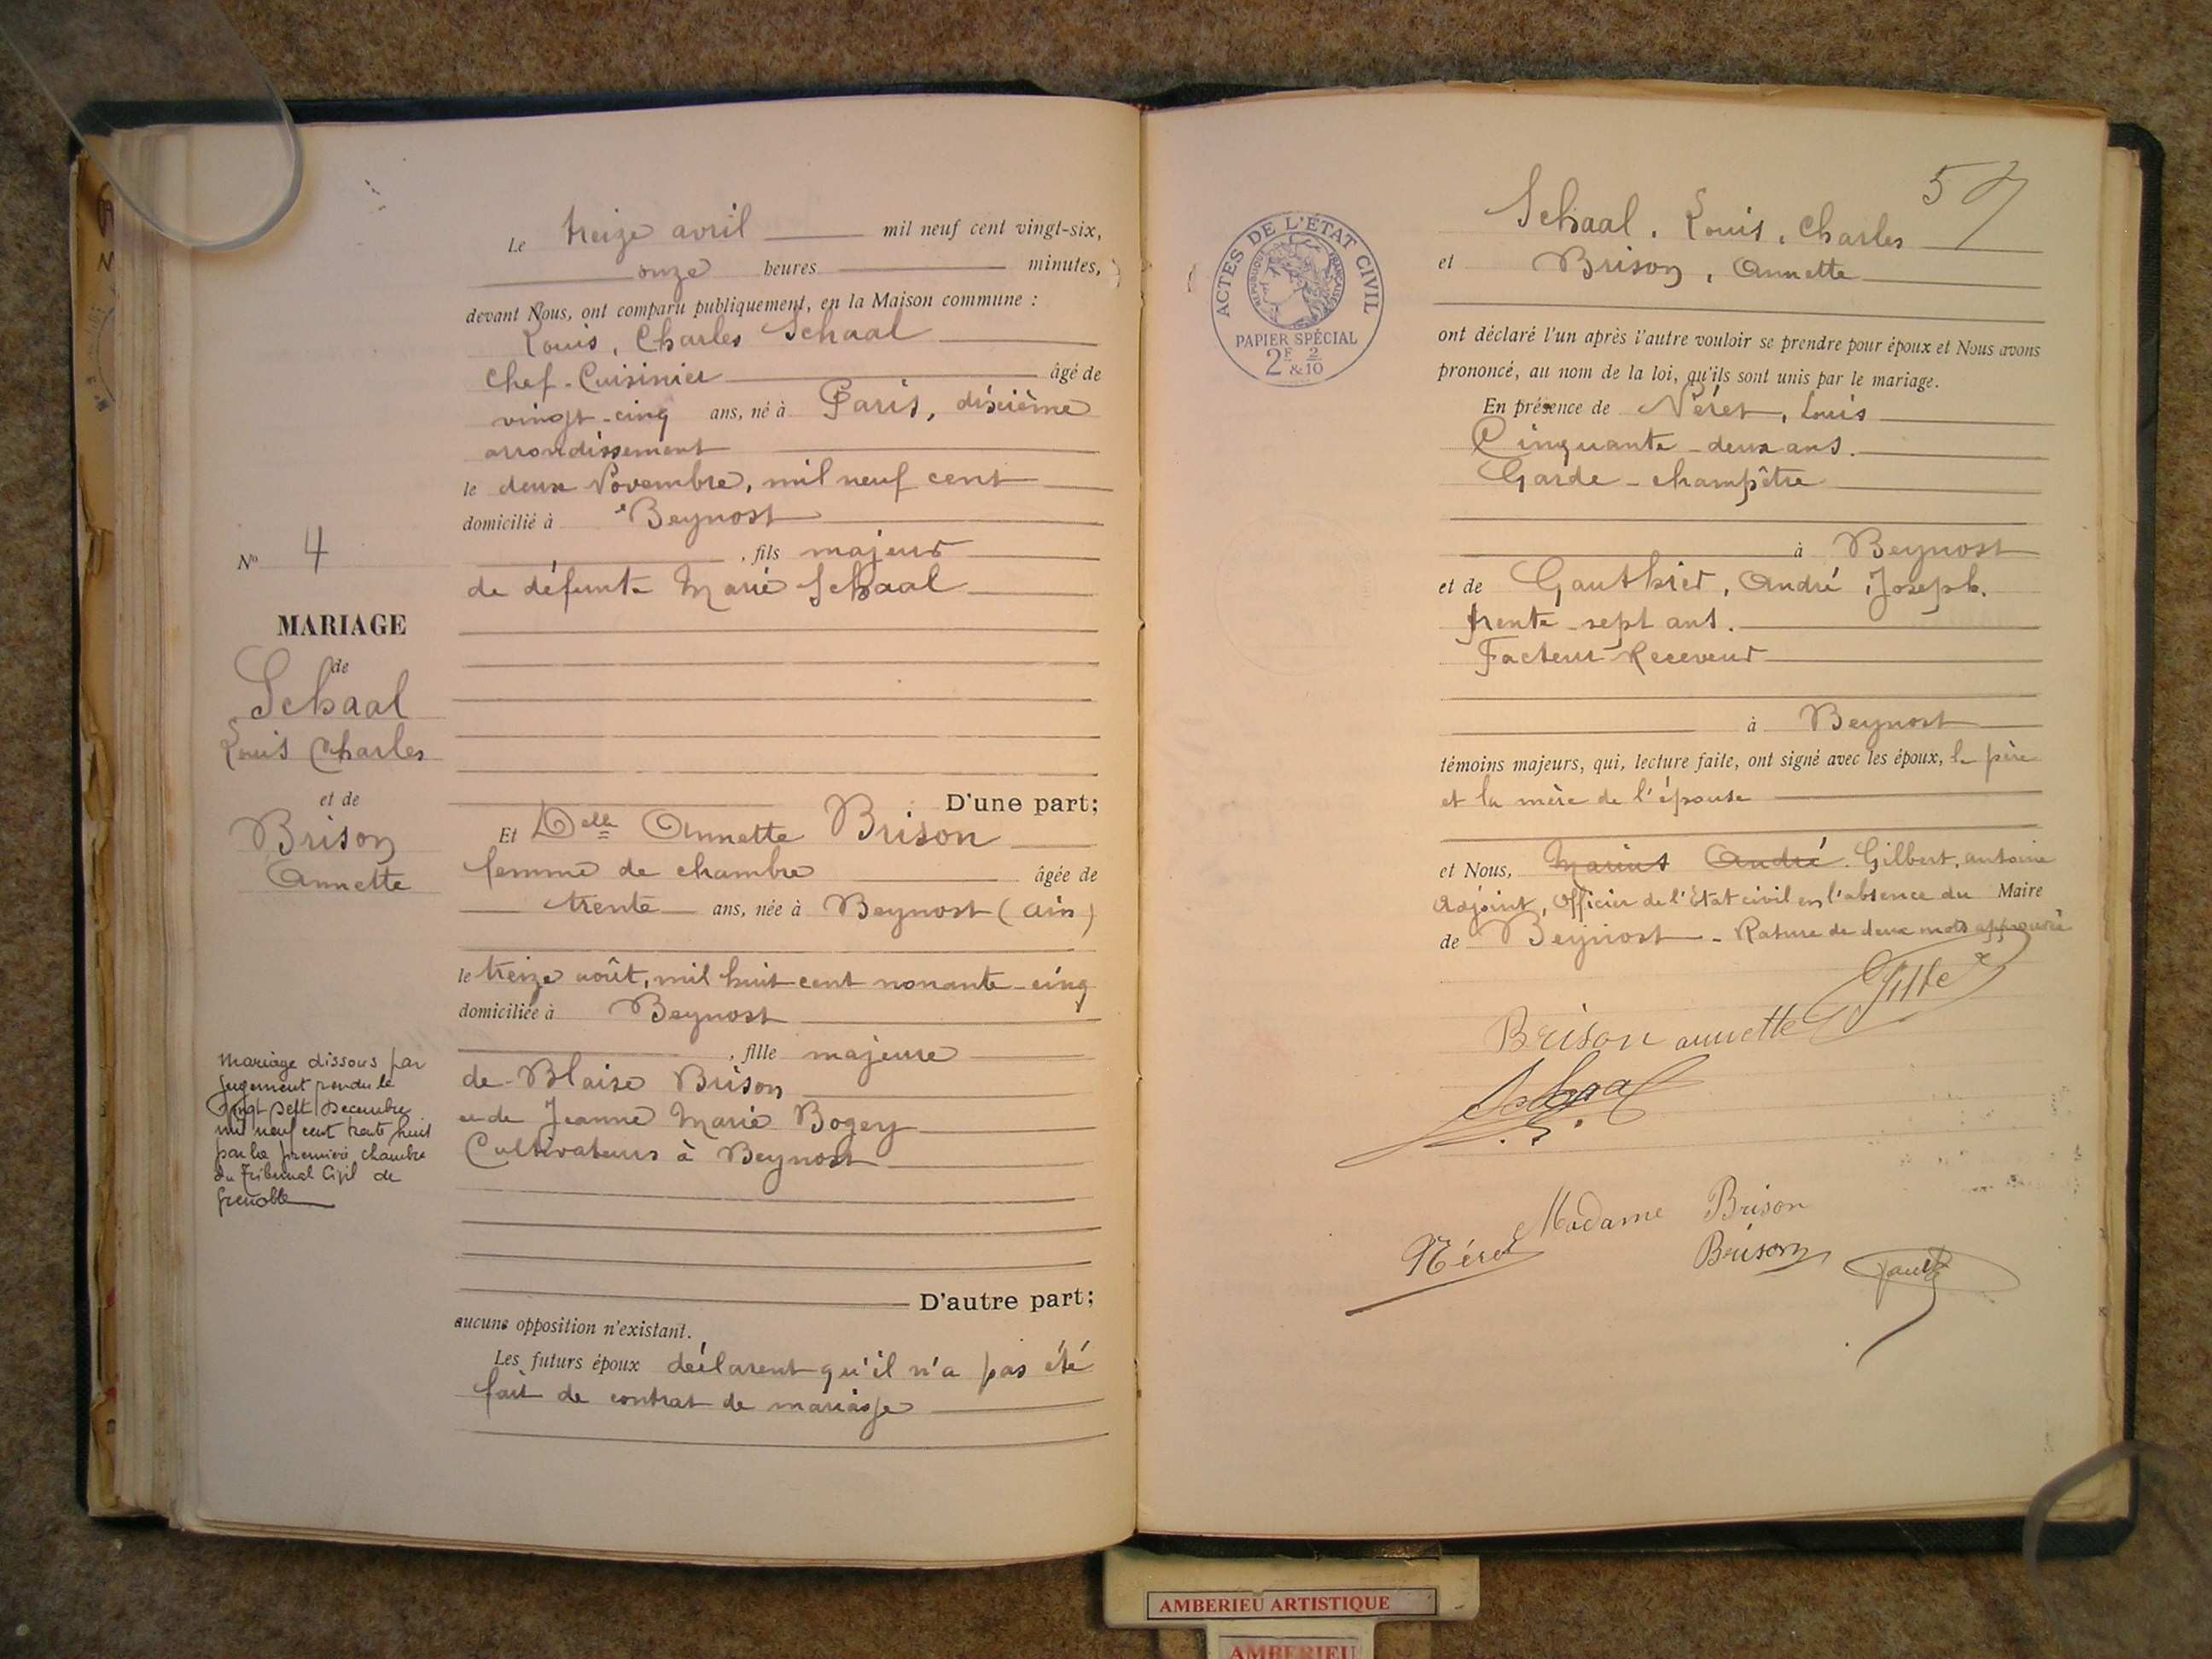 Le treize avril mil neuf cent vingt-six,
onze heures minutes,
devant Nous, ont comparu publiquement, en la Maison commune :
Louis, Charles Schaal
Chef-Cuisinier âgé de
vingt-cinq ans, né à Paris, dixième
arrondissement
le deux Novembre, mil neuf cent
domicilié à Beynost
, fils majeur
de défunte Marie Schaal
D'une part;
Et Delle Annette Brison
femme de chambre âgée de
trente ans, née à Beynost (Ain)
le treize août, mil huit cent nonante-cinq
domiciliée à Beynost
, fille majeure
de Blaise Brison
et de Jeanne Marie Bogey
Cultivateurs à Beynost
D'autre part;
aucune opposition n'existant.
Les futurs époux déclarent qu'il n'a pas été
fait de contrat de mariage
No 4
MARIAGE
de
Schaal
Louis Charles
et de
Brison
Annette
Mariage dissous par
jugement rendu le
vingt sept Decembre
mil neuf cent trente huit
par la première chambre
du Tribunal Civil de
Grenoble
57
Schaal, Louis, Charles
et Brison, Annette
ont déclaré l'un après l'autre vouloir se prendre pour époux et Nous avons
prononcé, au nom de la loi, qu'ils sont unis par le mariage.
En présence de Néret, Louis
Cinquante-deux ans.
Garde-champêtre
à Beynost
et de Gauthier, André, Joseph.
trente-sept ans.
Facteur-Receveur
à Beynost
témoins majeurs, qui, lecture faite, ont signé avec les époux, le père
et la mère de l'épouse
et Nous, Marius André Gilbert, antoine
Adjoint, Officier de l'Etat civil en l'absence du Maire
de Beynost - Rature de deux mots approuvée
Brison annette
Schaal
Madame Brison
Néret
Brison
ACTES DE L'ÉTAT CIVIL
RÉPUBLIQUE FRANÇAISE
PAPIER SPÉCIAL
2F & 2/10
AMBERIEU ARTISTIQUE
AMBERIEU